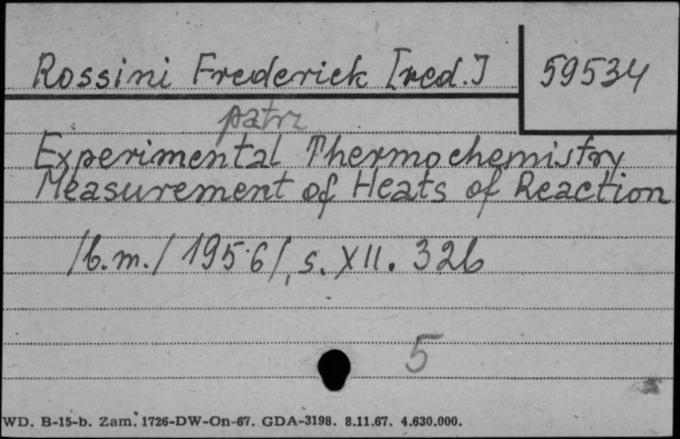 Rossini Frederick [red.] 59534
patrz
Experimental Thermochemistry
Measurement of Heats of Reaction
/b.m./ 1956/, s. XII. 326
5
WD. B-15-b. Zam. 1726-DW-On-67. GDA-3198. 8.11.67. 4.630.000.